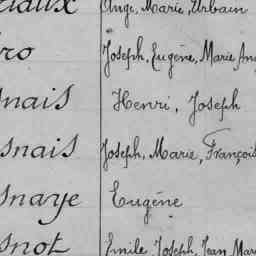 Ange, Marie, Urbain
ro Joseph, Eugène, Marie Ang
snais Henri, Joseph
snais Joseph, Marie, François
snaye Eugène
snot Emile, Joseph, Jean Mar